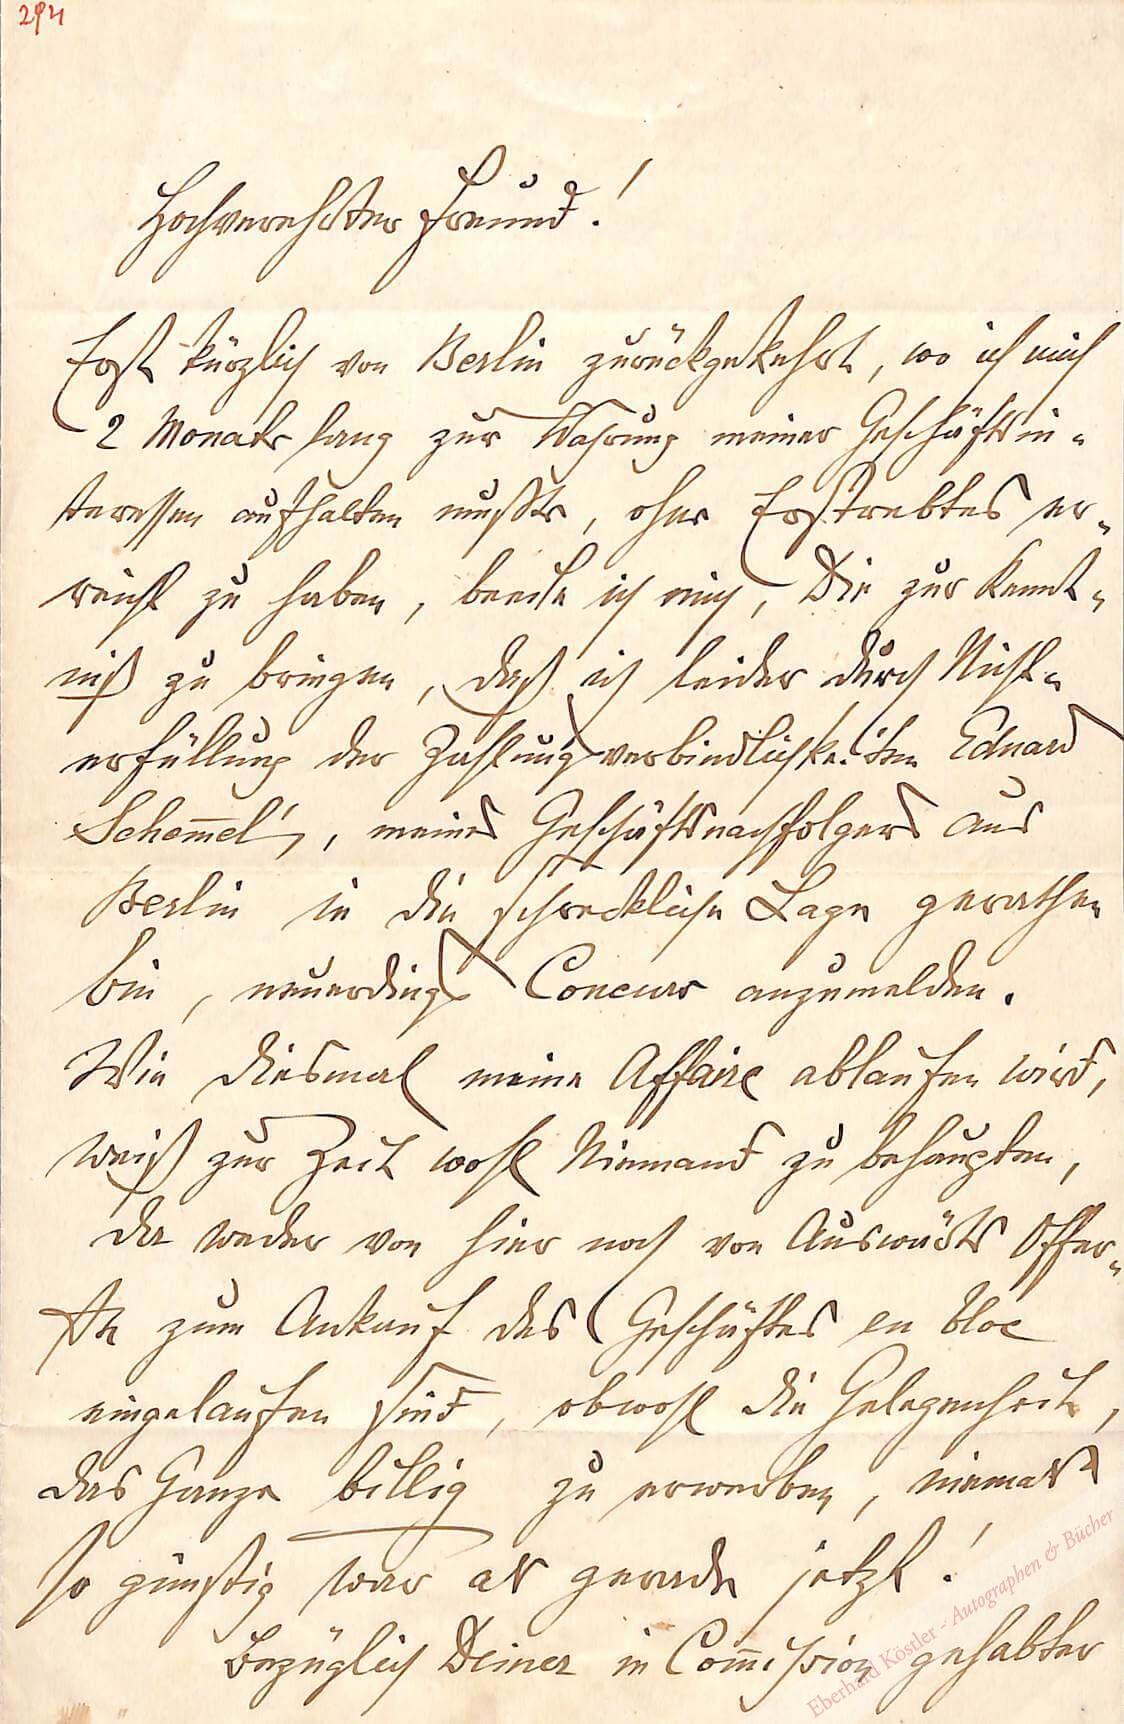 294
Hochverehrter Freund!
Erst kürzlich von Berlin zurückgekehrt, wo ich mich
2 Monate lang zur Wahrung meiner Geschäftsin-
teressen aufhalten mußte, ohne Erstrebtes er-
reicht zu haben, beeile ich mich, Dir zur Kennt-
niß zu bringen, daß ich leider durch Nicht-
erfüllung der Zahlungsverbindlichkeiten Eduard
Schem̅el's, meines Geschäftsnachfolgers aus
Berlin in die schreckliche Lage gerathen
bin, neuerdings Concurs anzumelden.
Wie diesmal meine Affaire ablaufen wird,
weiß zur Zeit wohl Niemand zu behaupten,
da weder von hier noch von Auswärts Offer-
ten zum Ankauf des Geschäftes en bloc
eingelaufen sind, obwohl die Gelegenheit,
das Ganze billig zu erwerben, niemals
so günstig war als gerade jetzt!
Bezüglich Deiner in Com̅ission gehabter
Eberhard Köstler - Autographen & Bücher